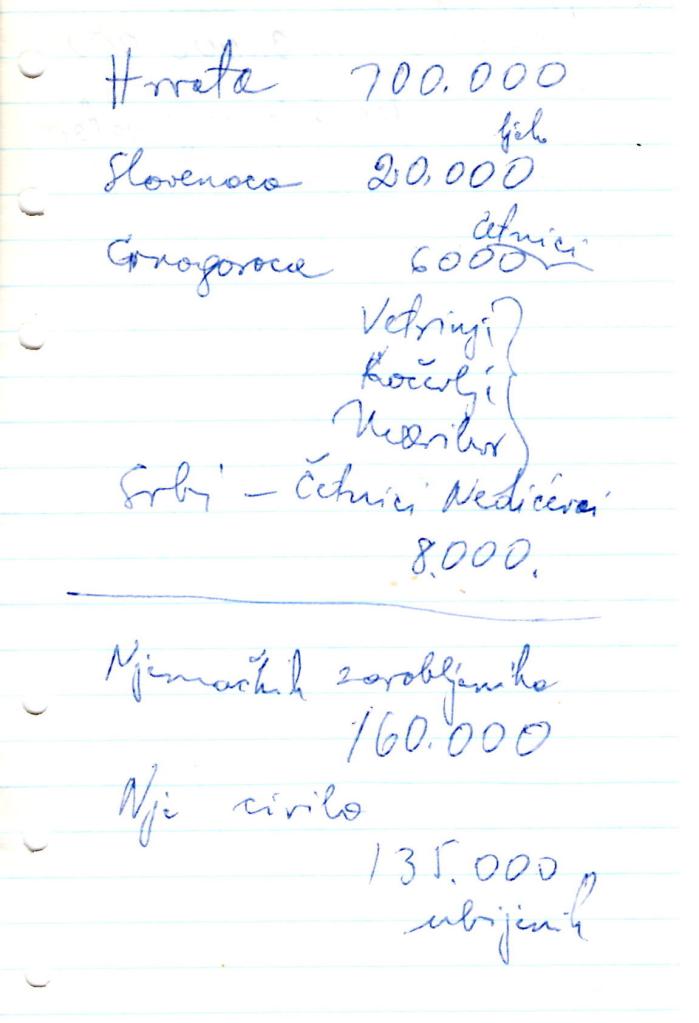 Hrvata 700.000
Slovenaca 20.000
četnici
Crnogoraca 6000
Vetrinji
Kočevlji
Maribor
Srbi – Četnici Nedićevci
8.000.
Njemačkih zarobljenika
160.000
Nje civila
135.000
ubijenih